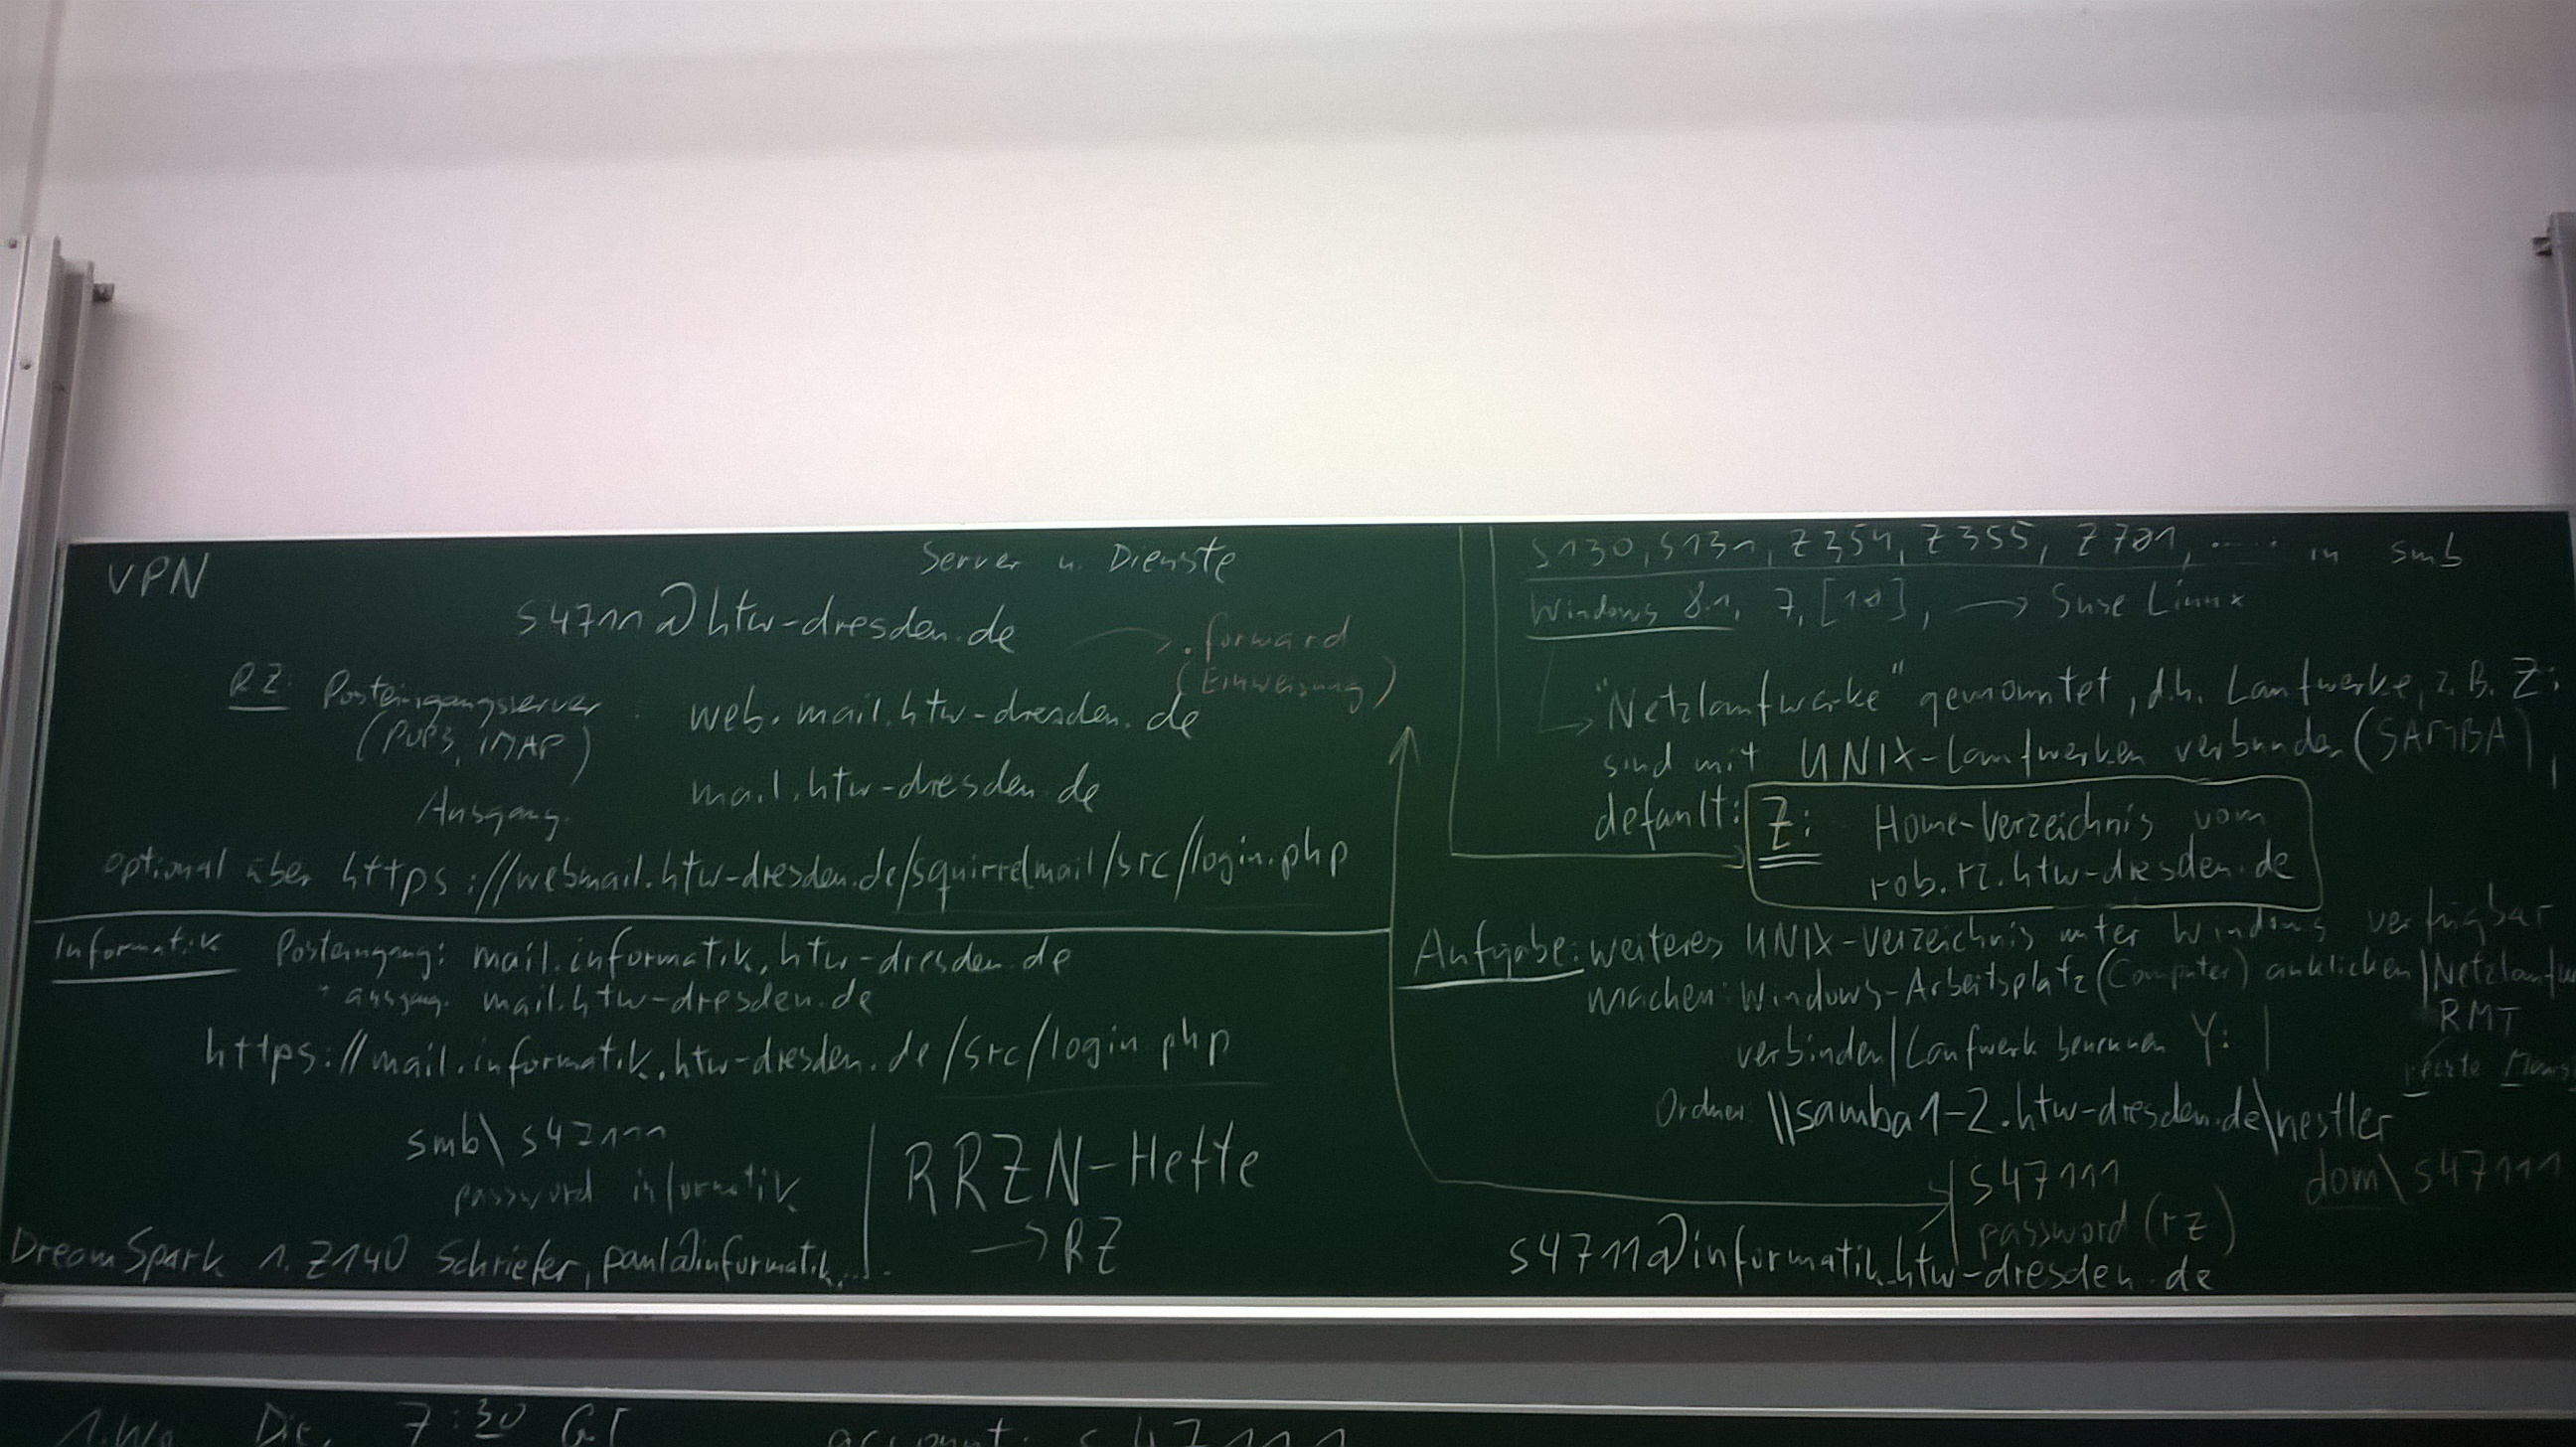 VPN
Server u. Dienste
s4711@htw-dresden.de → .forward
(Einweisung)
RZ: Posteingangsserver : web.mail.htw-dresden.de
(POP3, IMAP)
Ausgang. mail.htw-dresden.de
optional über https://webmail.htw-dresden.de/squirrelmail/src/login.php
Informatik Posteingang: mail.informatik.htw-dresden.de
" ausgang. mail.htw-dresden.de
https://mail.informatik.htw-dresden.de/src/login.php
smb\s47111
password informatik
RRZN-Hefte
→ RZ
DreamSpark 1. Z140 Schriefer, paul@informatik...
S130, S131, Z354, Z355, Z701, ...... in smb
Windows 8.1, 7, [10], → Suse Linux
"Netzlaufwerke" gemountet, d.h. Laufwerke, z.B. Z:
sind mit UNIX-Laufwerken verbunden (SAMBA),
default: Z: Home-Verzeichnis vom
rob.rz.htw-dresden.de
Aufgabe: weiteres UNIX-Verzeichnis unter Windows verfügbar
machen: Windows-Arbeitsplatz (Computer) anklicken | Netzlaufw
RMT
rechte Maus
verbinden | Laufwerk benennen Y: |
Ordner \\samba1-2.htw-dresden.de\nestler
s47111 dom\s47111
password (rz)
s4711@informatik.htw-dresden.de
Die, 7:30 GI account: s47111